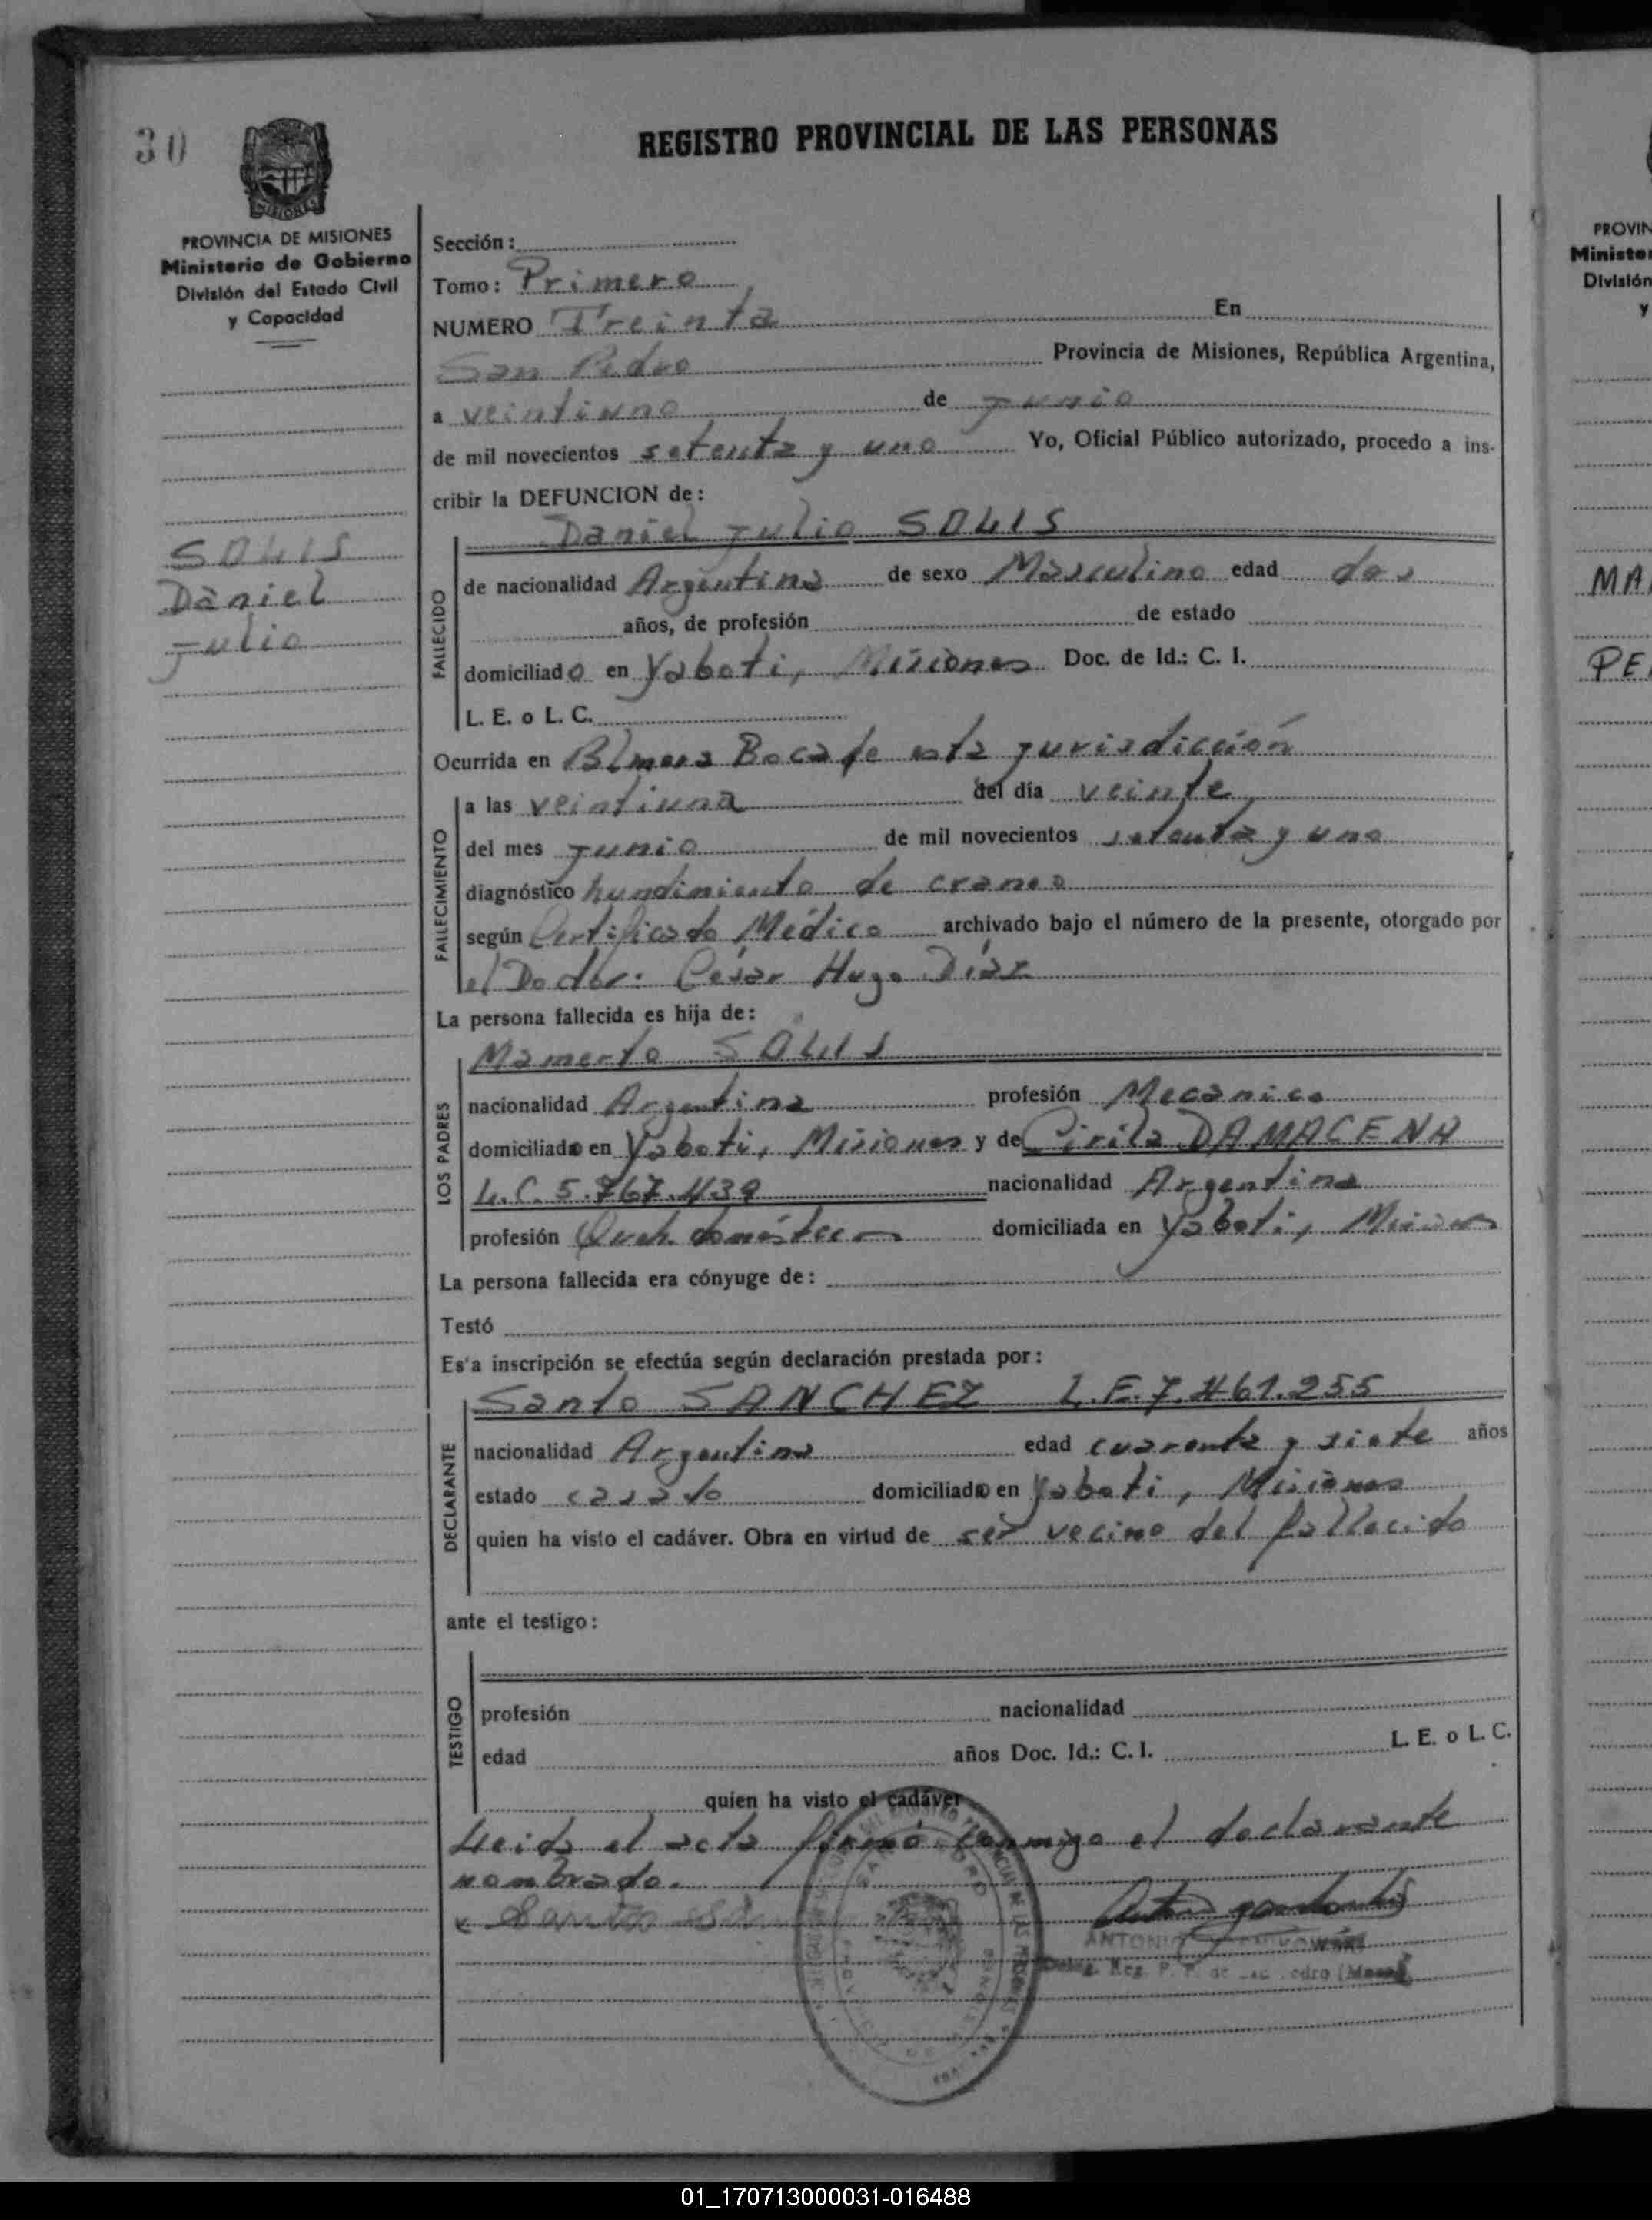 30
REGISTRO PROVINCIAL DE LAS PERSONAS
PROVINCIA DE MISIONES
Ministerio de Gobierno
División del Estado Civil
y Capacidad
SOLIS
Daniel
Julio
Sección:
Tomo: Primero
NUMERO Treinta En
San Pedro Provincia de Misiones, República Argentina,
a veintiuno de Junio
de mil novecientos setenta y uno Yo, Oficial Público autorizado, procedo a ins-
cribir la DEFUNCION de:
Daniel Julio SOLIS
FALLECIDO
de nacionalidad Argentina de sexo Masculino edad dos
años, de profesión de estado
domiciliado en Yaboti, Misiones Doc. de Id.: C. I.
L. E. o L. C.
Ocurrida en Boca de esta Jurisdicción
FALLECIMIENTO
a las veintiuna del día veinte
del mes Junio de mil novecientos setenta y uno
diagnóstico hundimiento de craneo
según Certificado Médico archivado bajo el número de la presente, otorgado por
el Doctor: César Hugo Díaz
La persona fallecida es hija de:
Mamerto SOLIS
LOS PADRES
nacionalidad Argentina profesión Mecánico
domiciliado en Yaboti, Misiones y de Cirila DAMACENA
L.C. 5.767.439 nacionalidad Argentina
profesión Queh. domésticos domiciliada en Yaboti, Misiones
La persona fallecida era cónyuge de:
Testó
Es'a inscripción se efectúa según declaración prestada por:
Santo SANCHEZ L.E. 7.461.255
DECLARANTE
nacionalidad Argentina edad cuarenta y siete años
estado casado domiciliado en Yaboti, Misiones
quien ha visto el cadáver. Obra en virtud de ser vecino del fallecido
ante el testigo:
TESTIGO
profesión nacionalidad
edad años Doc. Id.: C. I. L. E. o L. C.
quien ha visto el cadáver
Leida el acta firmó conmigo el declarante
nombrado.
ANTONIO
PROVIN
Minister
División
y
MA
PE
01_170713000031-016488